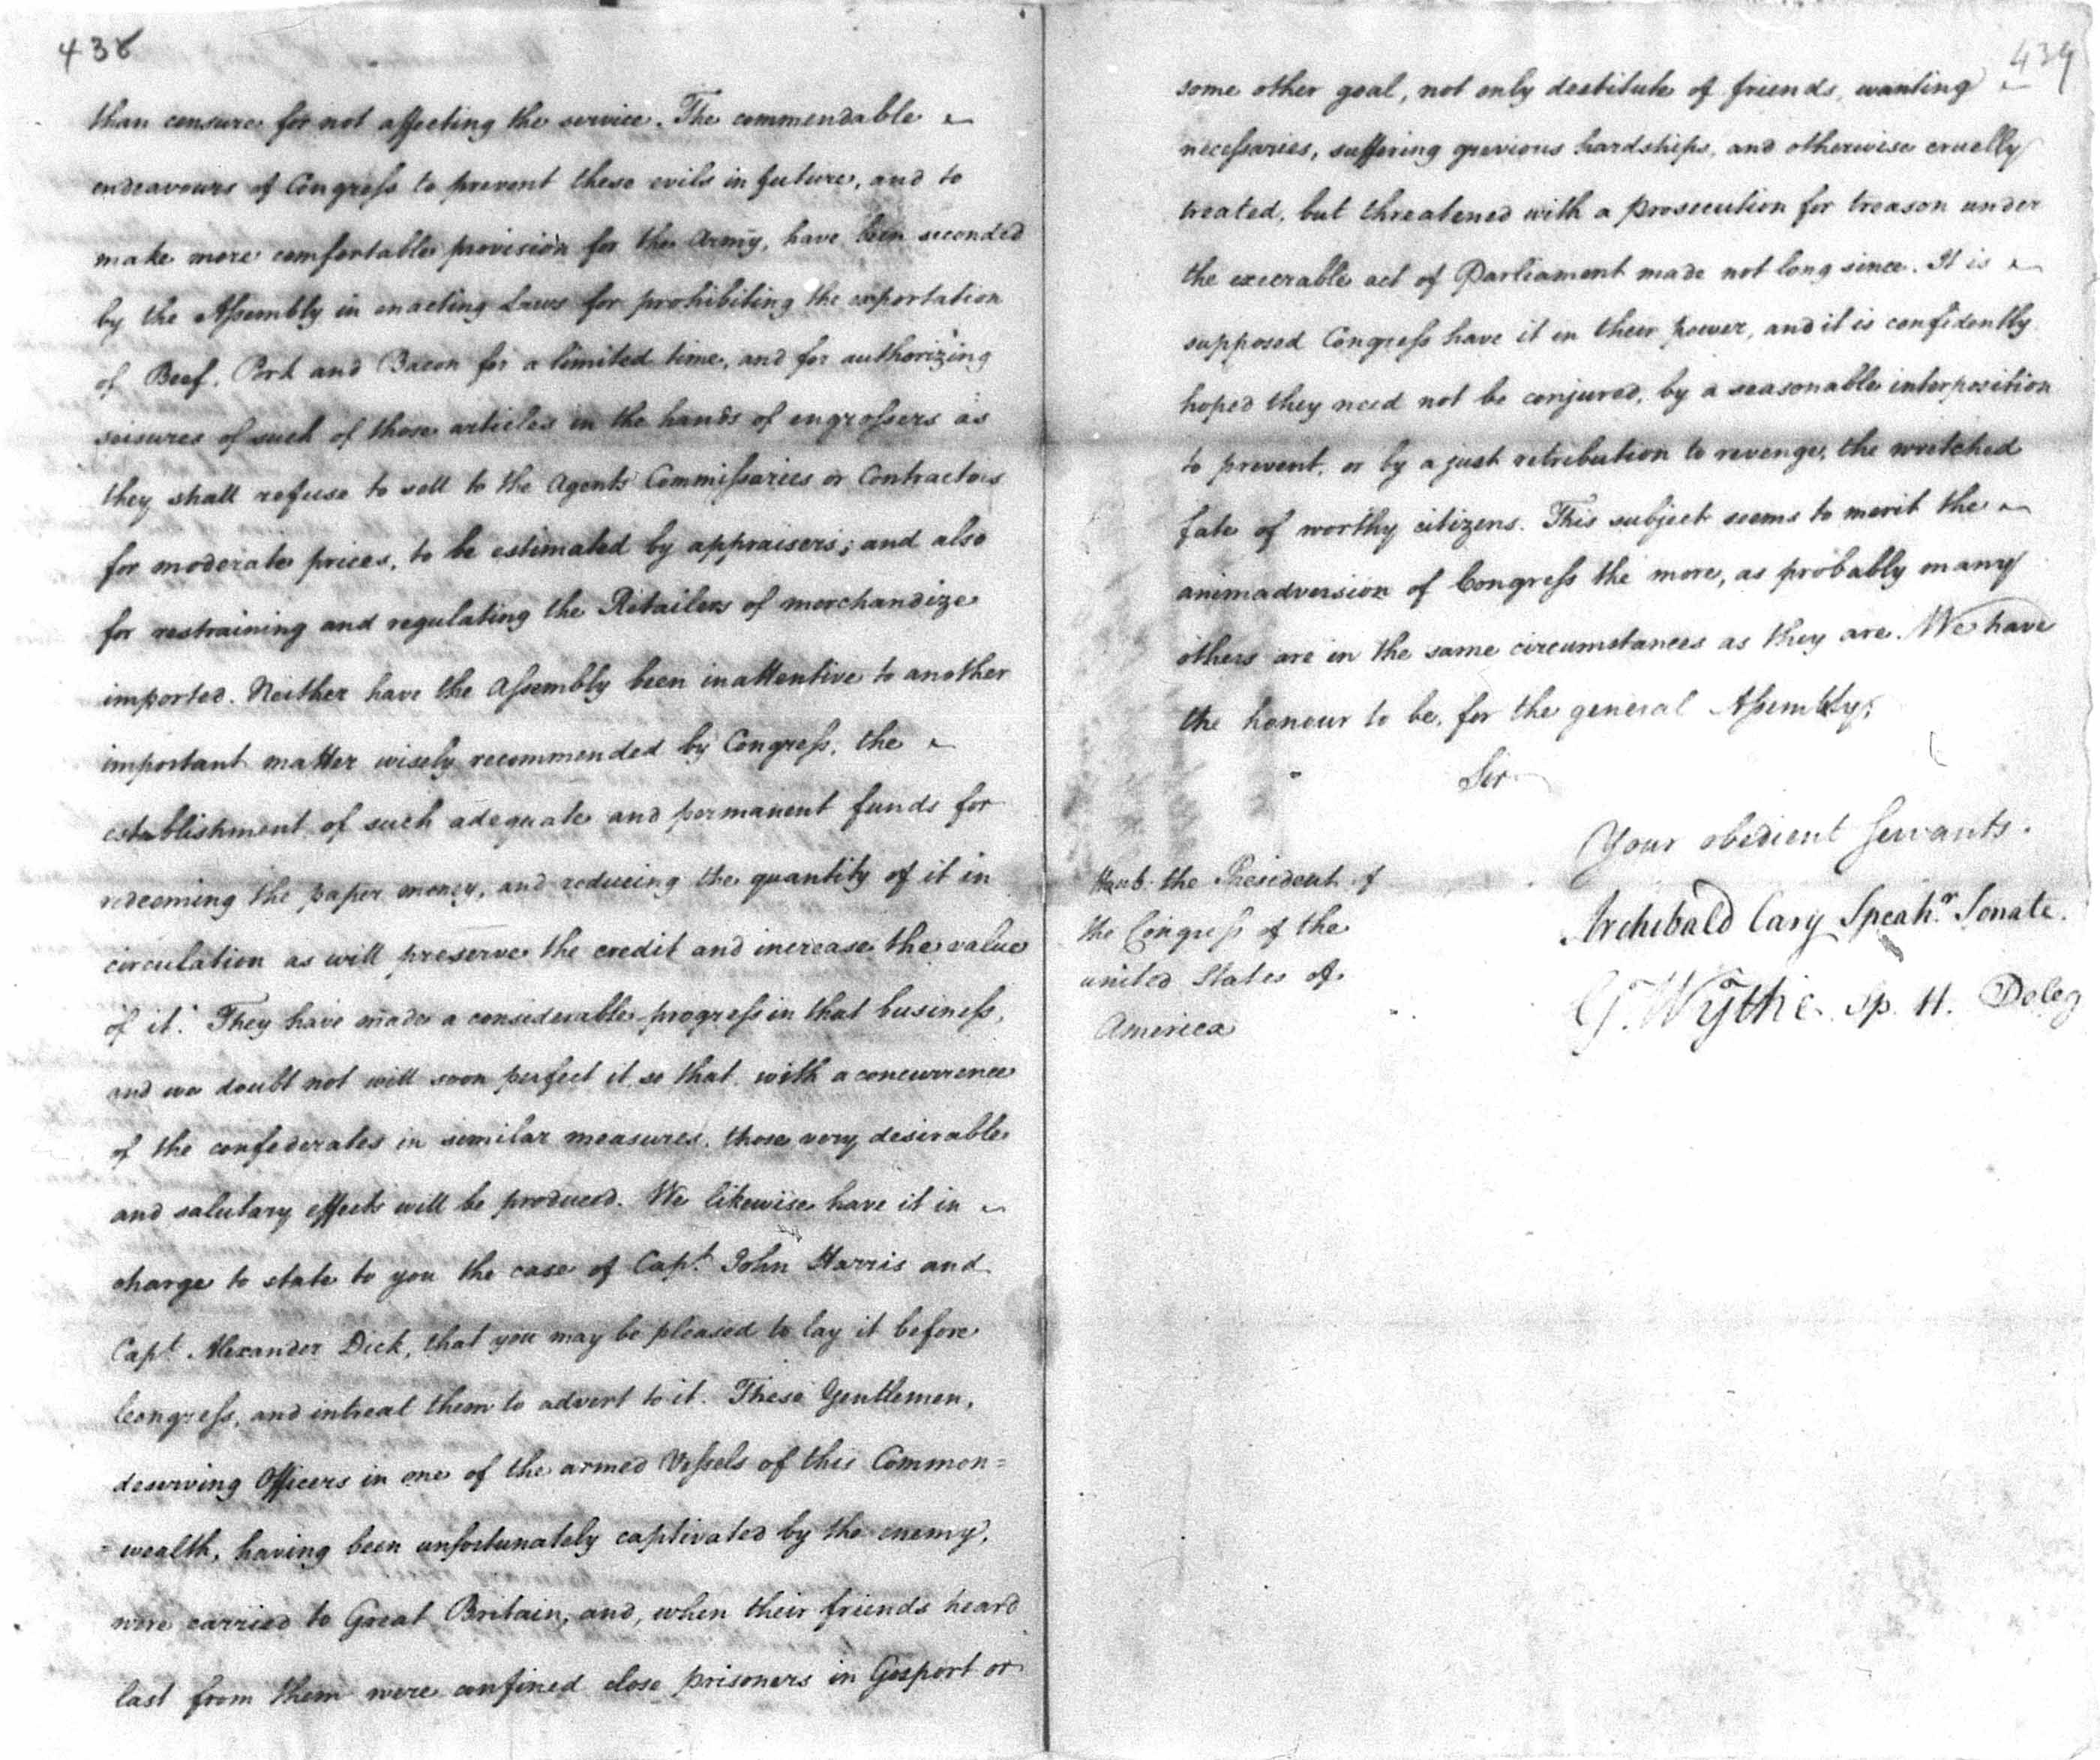 438
than censure for not affecting the service. The commendable
endeavours of Congress to prevent these evils in future, and to
make more comfortable provision for the Army, have been seconded
by the Assembly in enacting Laws for prohibiting the exportation
of Beef, Pork and Bacon for a limited time, and for authorizing
seisures of such of those articles in the hands of engrossers as
they shall refuse to sell to the Agents Commissaries or Contractors
for moderate prices, to be estimated by appraisers; and also
for restraining and regulating the Retailers of merchandize
imported. Neither have the Assembly been inattentive to another
important matter wisely recommended by Congress, the
establishment of such adequate and permanent funds for
redeeming the paper money, and reducing the quantity of it in
circulation as will preserve the credit and increase the value
of it. They have made a considerable progress in that business,
and we doubt not will soon perfect it, so that, with a concurrence
of the confederates in similar measures, those very desirable
and salutary effects will be produced. We likewise have it in
charge to state to you the case of Capt. John Harris and
Capt. Alexander Dick, that you may be pleased to lay it before
Congress, and intreat them to advert to it. These Gentlemen,
deserving Officers in one of the armed Vessels of this Common=
=wealth, having been unfortunately captivated by the enemy,
were carried to Great Britain, and, when their friends heard
last from them were confined close prisoners in Gosport or
439
some other goal, not only destitute of friends, wanting
necessaries, suffering grevious hardships, and otherwise cruelly
treated, but threatened with a prosecution for treason under
the execrable act of Parliament made not long since. It is
supposed Congress have it in their power, and it is confidently
hoped they need not be conjured, by a seasonable interposition
to prevent, or by a just retribution to revenge, the wretched
fate of worthy citizens. This subject seems to merit the
animadversion of Congress the more, as probably many
others are in the same circumstances as they are. We have
the honour to be, for the general Assembly,
Sir
Your obedient Servants.
Archibald Cary Speakr. Senate.
G. Wythe Sp. H. Deleg
Honb. the President of
the Congress of the
united States of
America